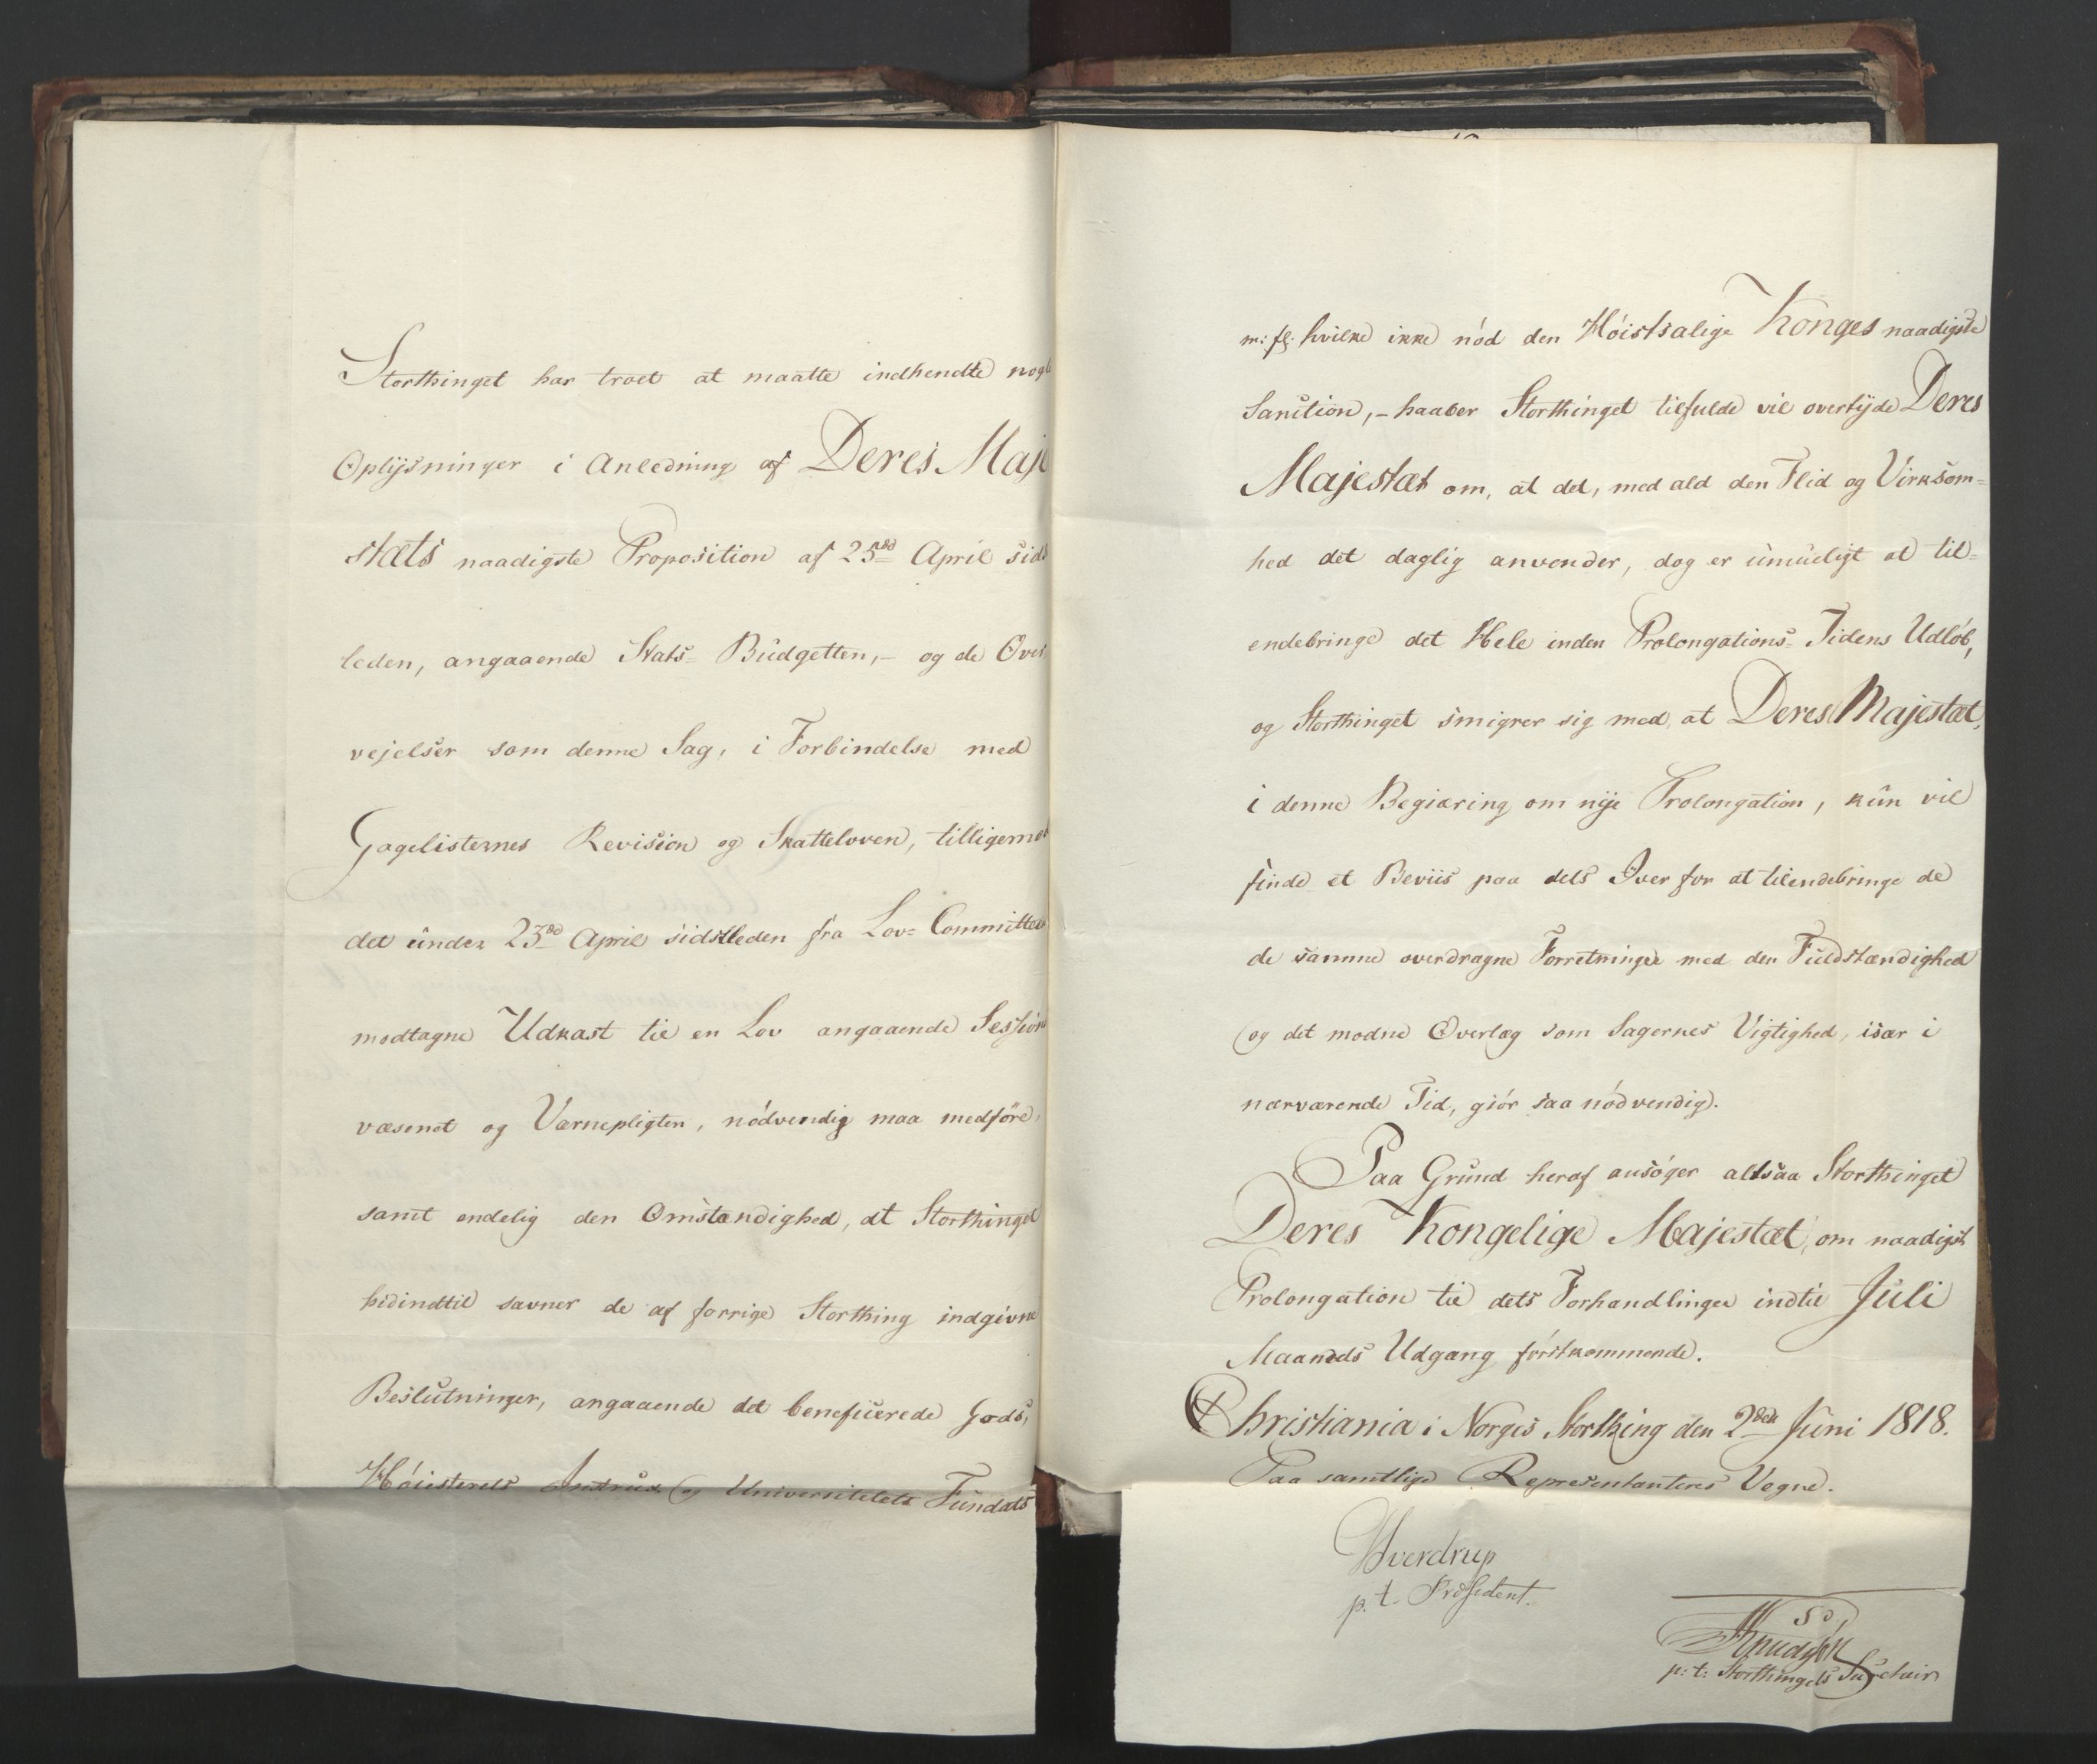 Storthinget har troet at maatte indhendte nogle
Oplÿsninger i Anledning af Deres Maje
stæts naadigste Proposition af 25de April sidst
leden, angaaende Stats= Budgetten,- og de Over
vejelser som denne Sag, i Forbindelse med
Gagelisternes Revision og Skatteloven, tilligemed
det under 23de April sidstleden fra Lov= Committeen
modtagne Udkast til en Lov angaaende Sessions
væsenet og Værnepligten, nødvendig maa medføre,
samt endelig den Omstændighed, at Storthinget
hidindtil savner de af forrige Storthing indgivne
Beslutninger, angaaende det beneficerede Gods,
Høiesterets Instrux og Universitetets Fundats
m: fl: hvilke ikke nød den Høistsalige Konges naadigste
Sanction,- haaber Storthinget tilfulde vil overtÿde Deres
Majestæt om, at det, med ald den Flid og Virksom=
hed det daglig anvender, dog er umueligt at til=
endebringe det Hele inden Prolongations= Tidens Udløb,
og Storthinget smigrer sig med, at Deres Majestæt,
i denne Begiæring om nÿe Prolongation, kun vil
finde et Beviis paa dets Iver for at tilendebringe de
de samme overdragne Forretninger med den Fuldstændighed
og det modne Overlæg som Sagernes Vigtighed, især i
nærværende Tid, giør saa nødvendig.
Paa Grund heraf ansøger altsaa Storthinget
Deres Kongelige Majestæt, om naadigst
Prolongation til dets Forhandlinger indtil Juli
Maaneds Udgang førstkommende.
Christiania i Norges Storthing den 2den Juni 1818.
Paa samtlige Representanteres Vegne.
Sverdrup
p. t. Præsident.
p: t: Storthingets Secretair